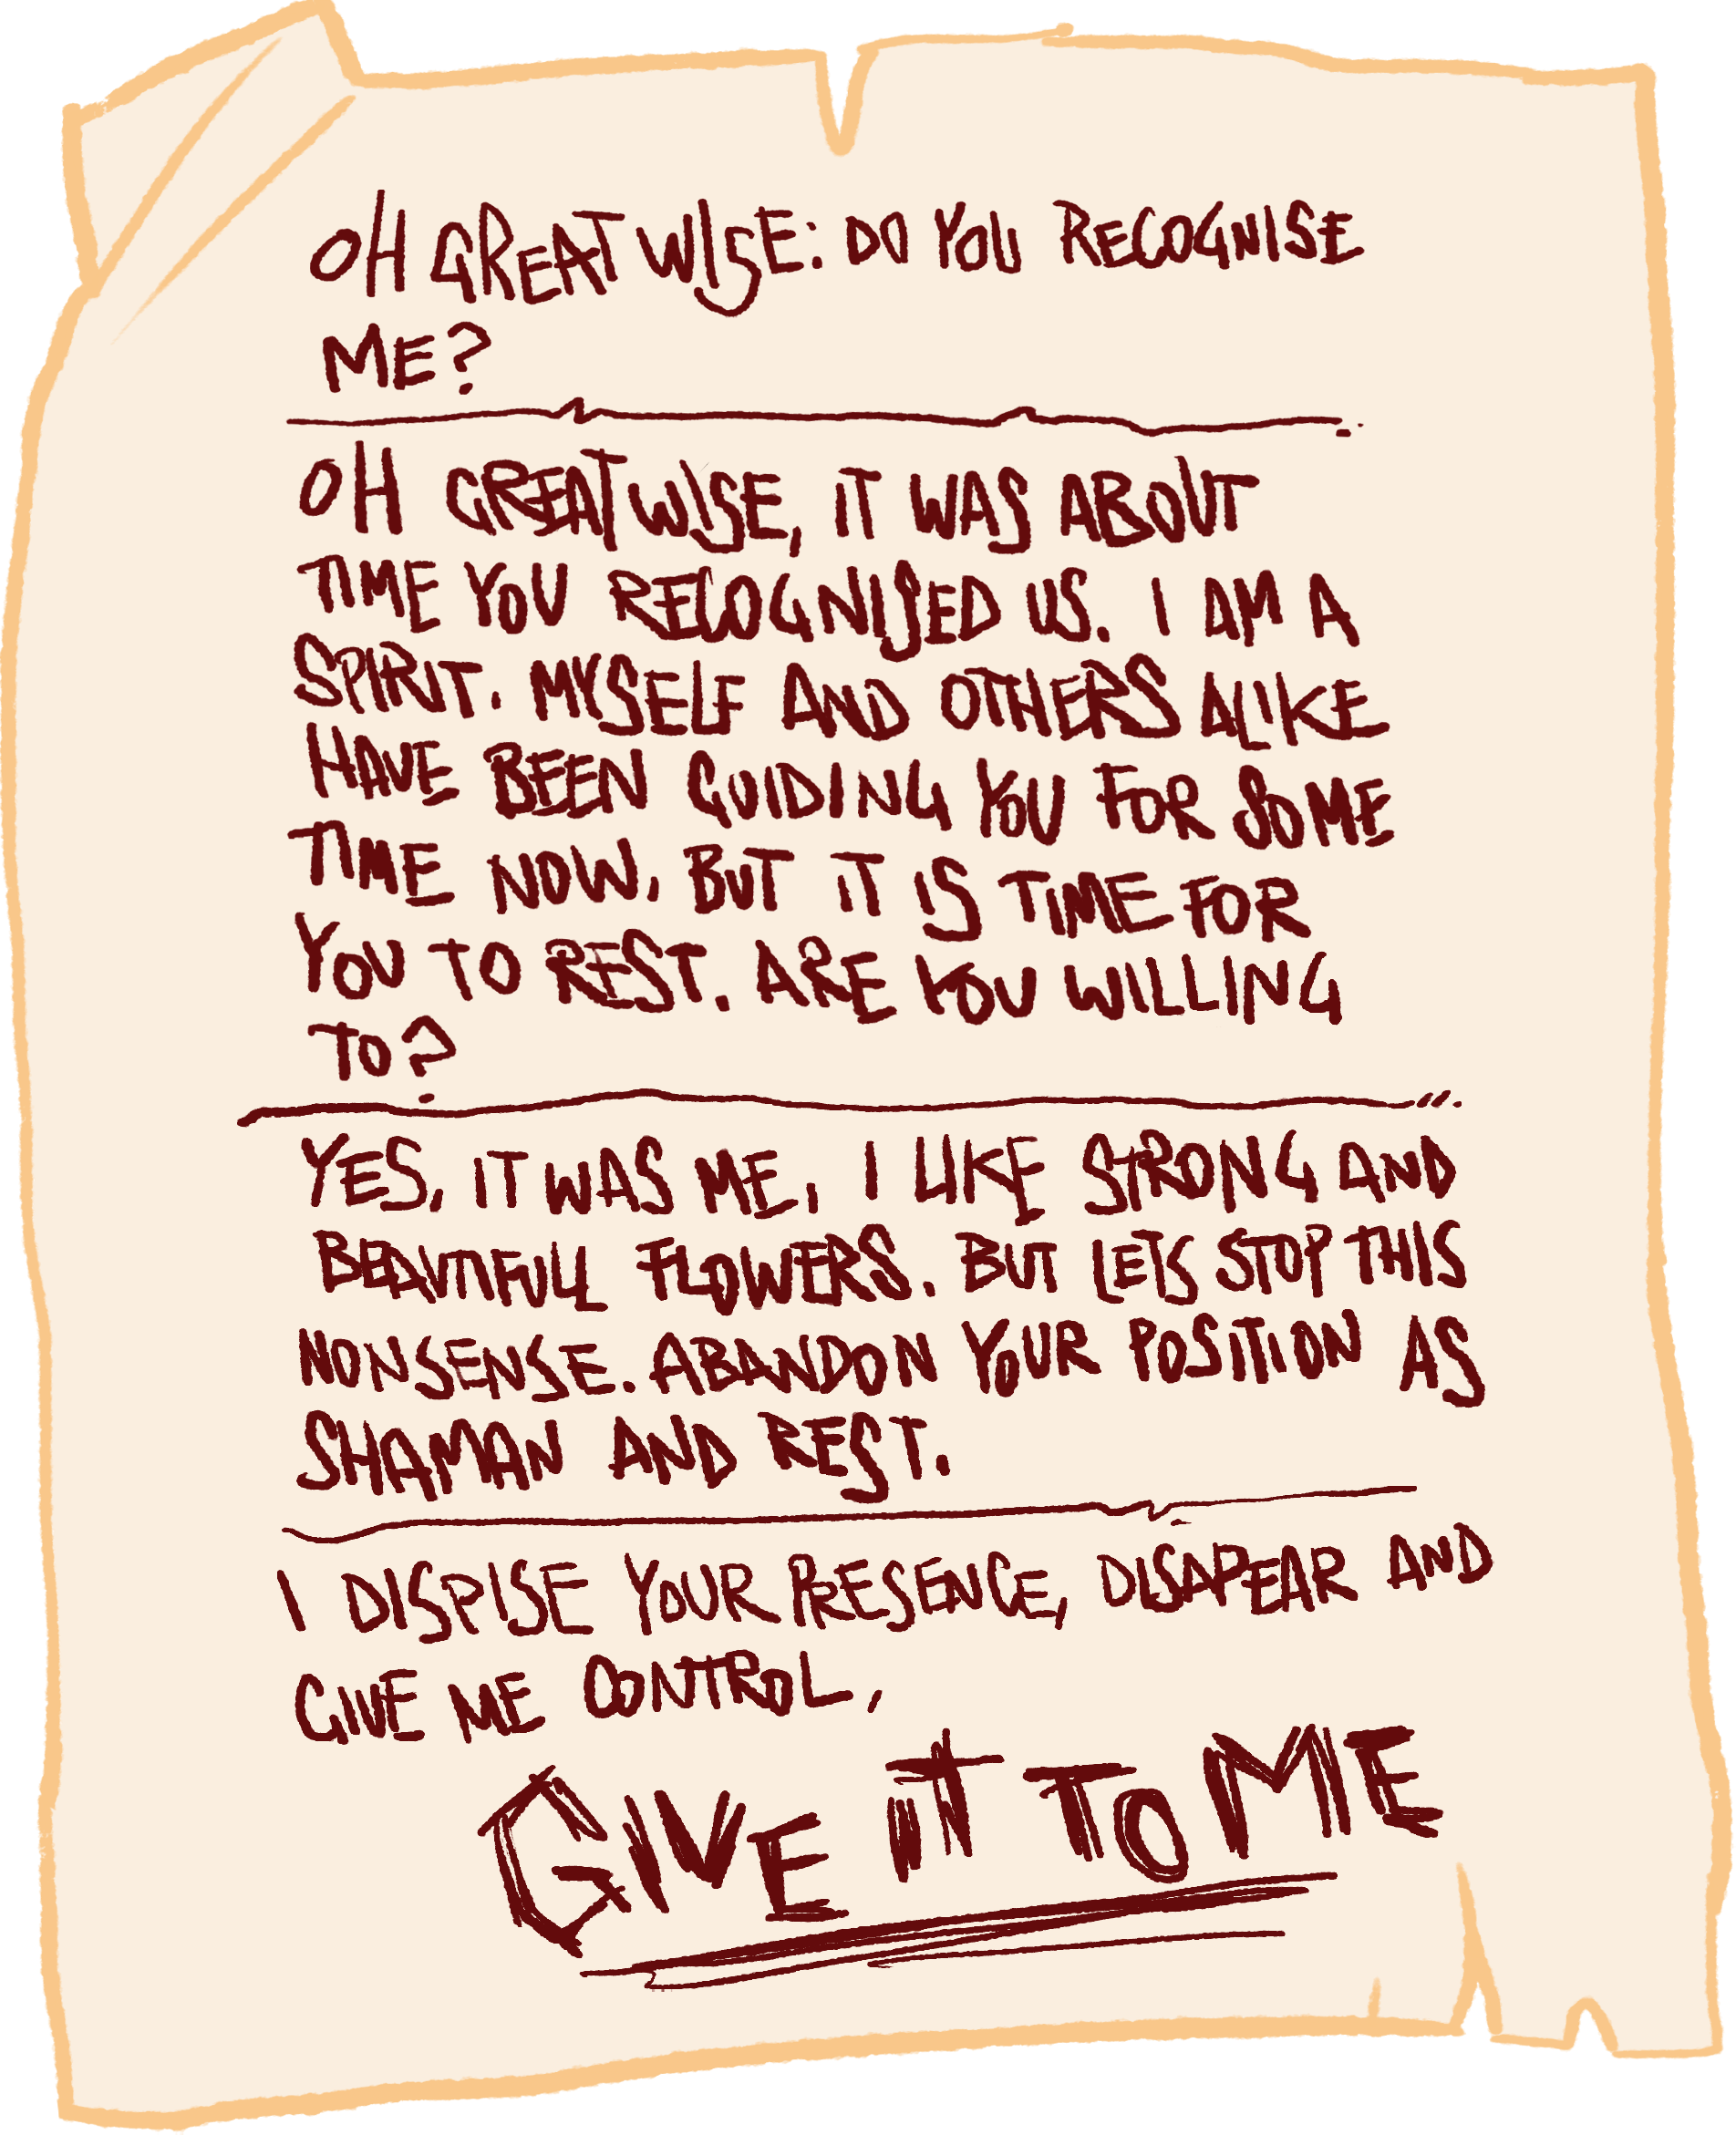 OH GREAT WISE: DO YOU RECOGNISE
ME?
OH GREAT WISE, IT WAS ABOUT
TIME YOU RECOGNISED US. I AM A
SPIRIT. MYSELF AND OTHERS ALIKE
HAVE BEEN GUIDING YOU FOR SOME
TIME NOW, BUT IT IS TIME FOR
YOU TO REST. ARE YOU WILLING
TO?
YES, IT WAS ME, I LIKE STRONG AND
BEAUTIFULL FLOWERS. BUT LETS STOP THIS
NONSENSE. ABANDON YOUR POSITION AS
SHAMAN AND REST.
I DISPISE YOUR PRESENCE, DISAPEAR AND
GIVE ME CONTROL,
GIVE IT TO ME